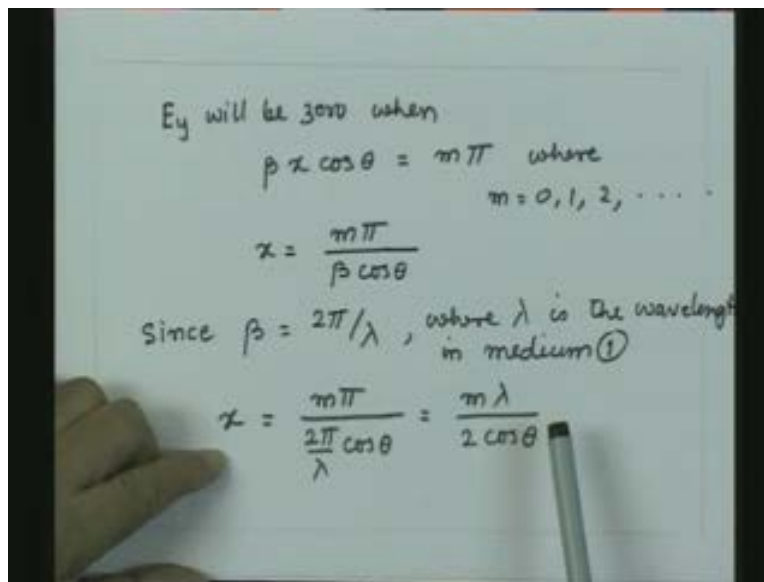 Ey will be zero when
β x cosθ = mπ where
m = 0, 1, 2, ....
x = mπ / β cosθ
Since β = 2π/λ, where λ is the wavelength
in medium ①
x = mπ / (2π/λ cosθ) = mλ / 2 cosθ